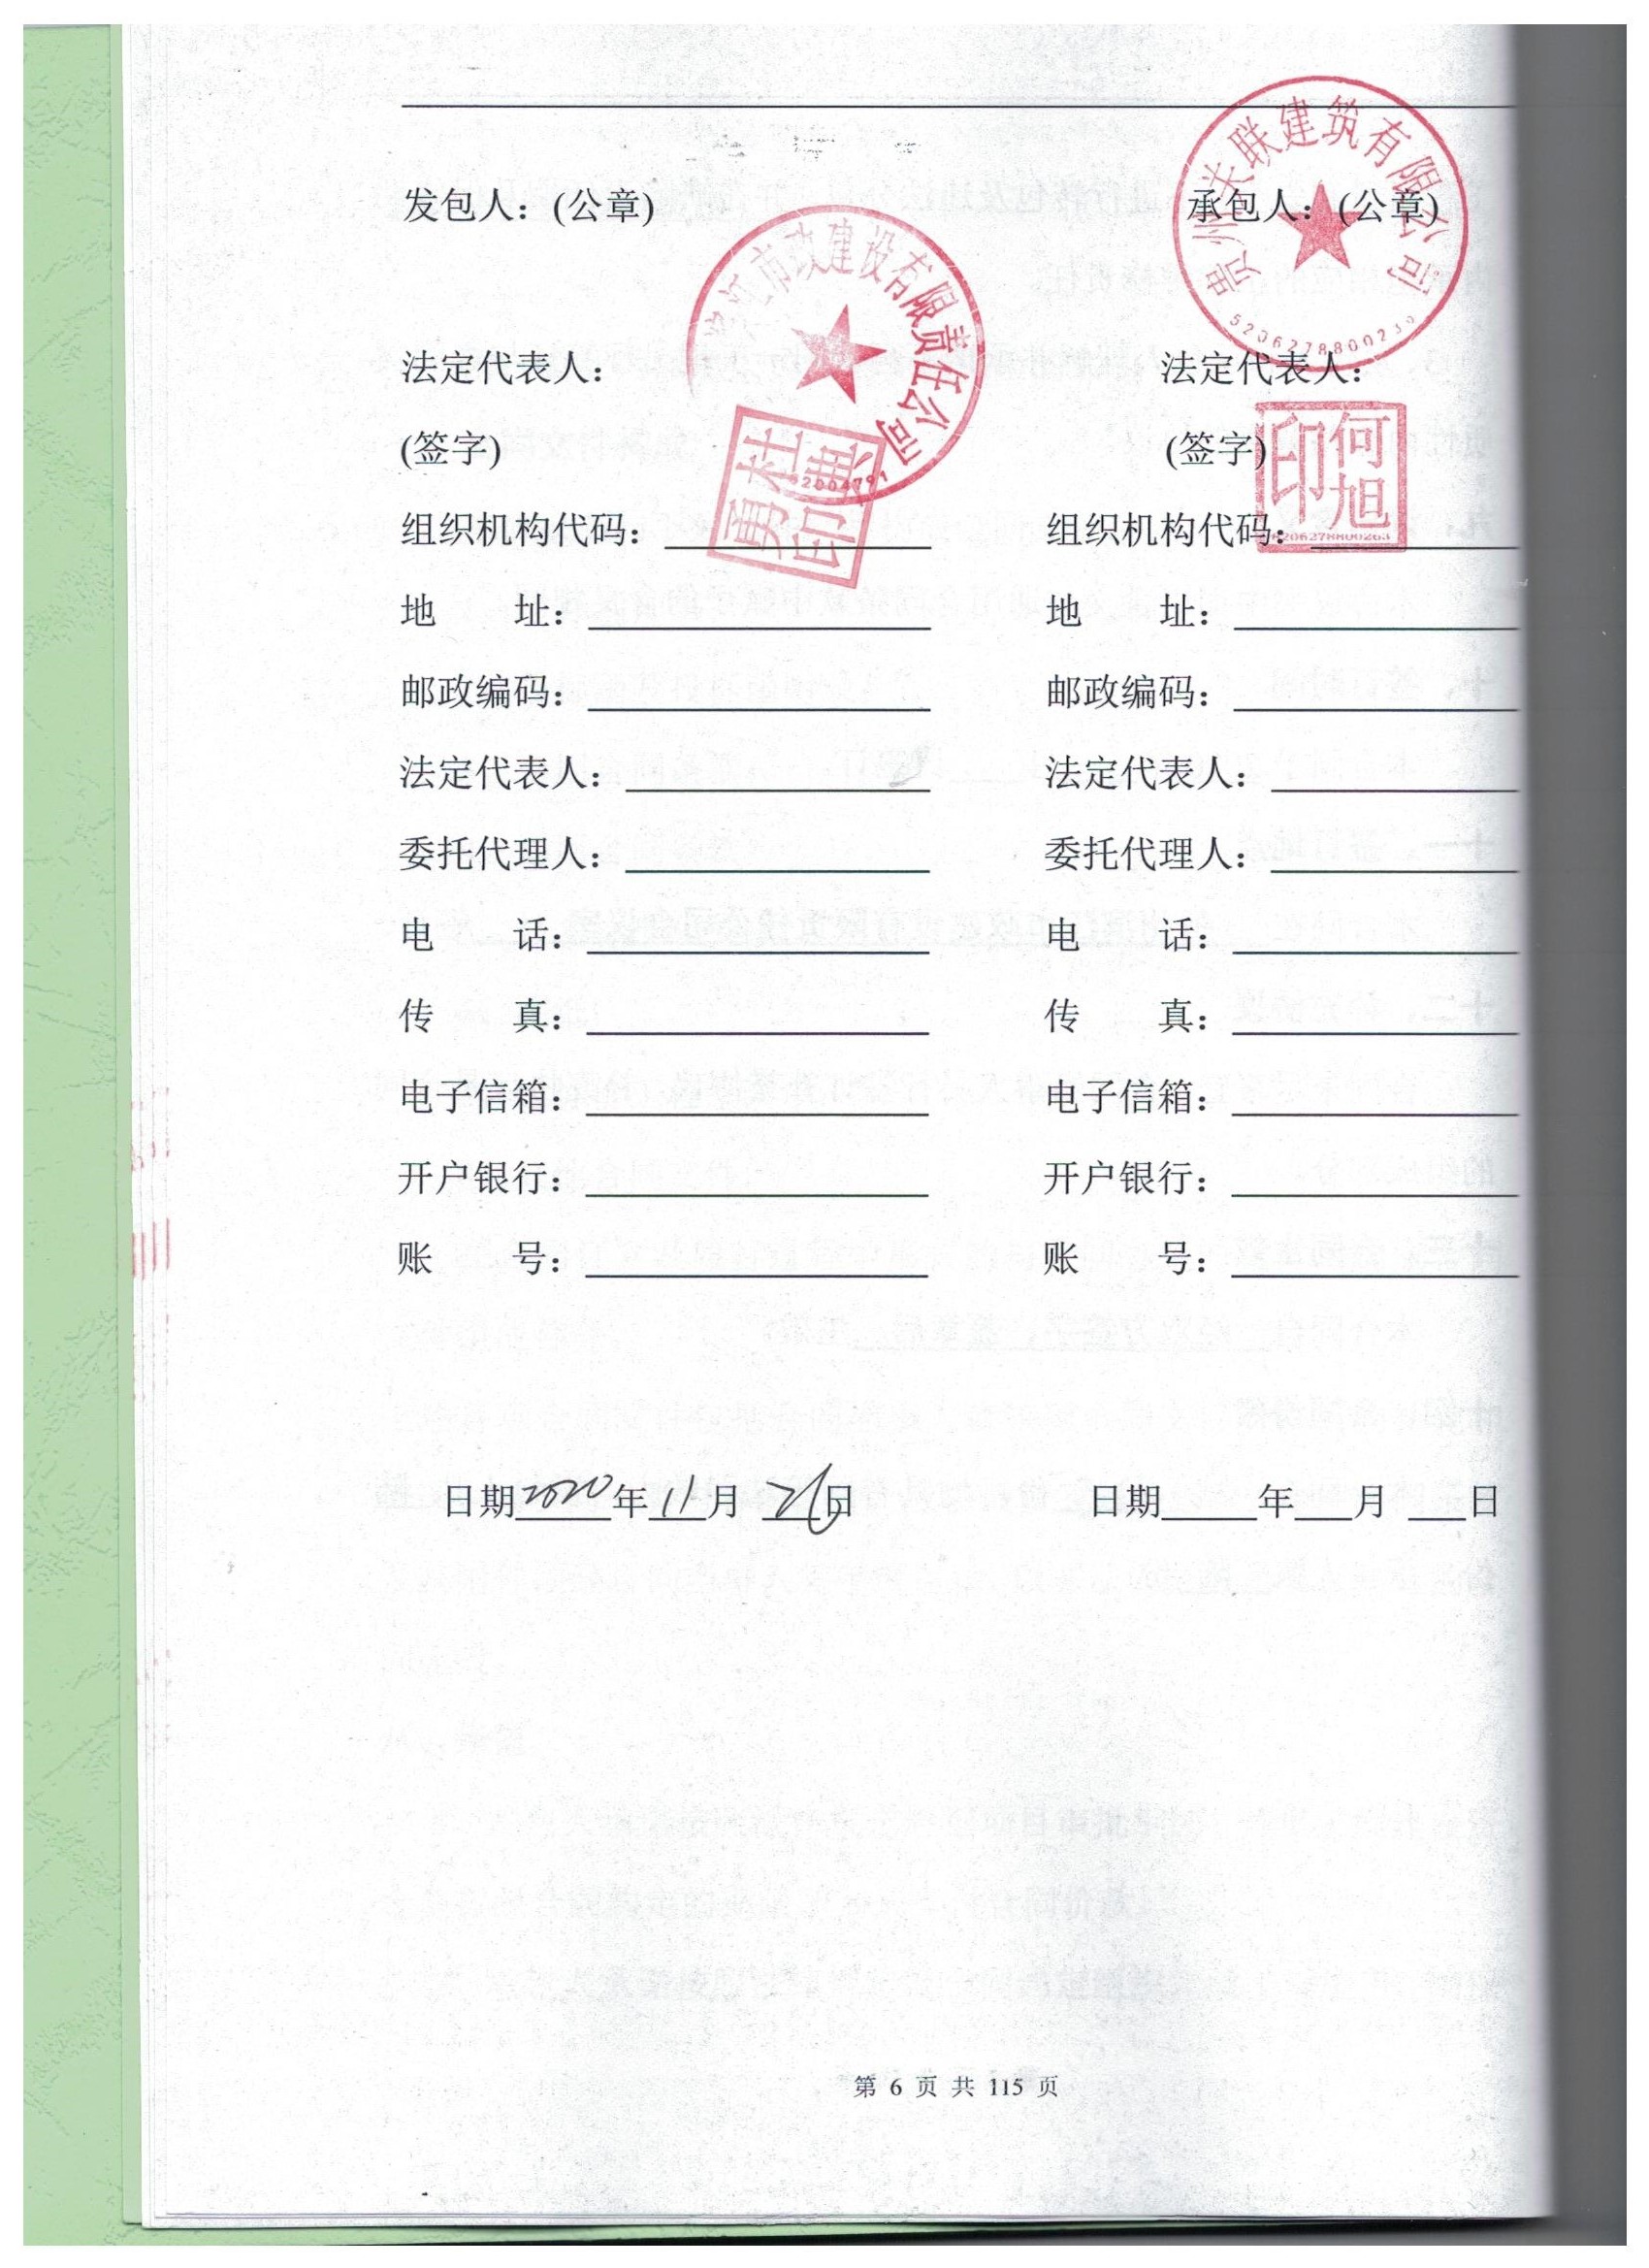 发包人：(公章) 承包人：(公章)
市政建设有限责任公司
贵州关联建筑有限公司
法定代表人： 法定代表人：
(签字) (签字)
何旭印
5206278800263
组织机构代码： 组织机构代码：
地 址： 地 址：
邮政编码： 邮政编码：
法定代表人： 法定代表人：
委托代理人： 委托代理人：
电 话： 电 话：
传 真： 传 真：
电子信箱： 电子信箱：
开户银行： 开户银行：
账 号： 账 号：
日期2020年11月 26日 日期 年 月 日
第 6 页 共 115 页